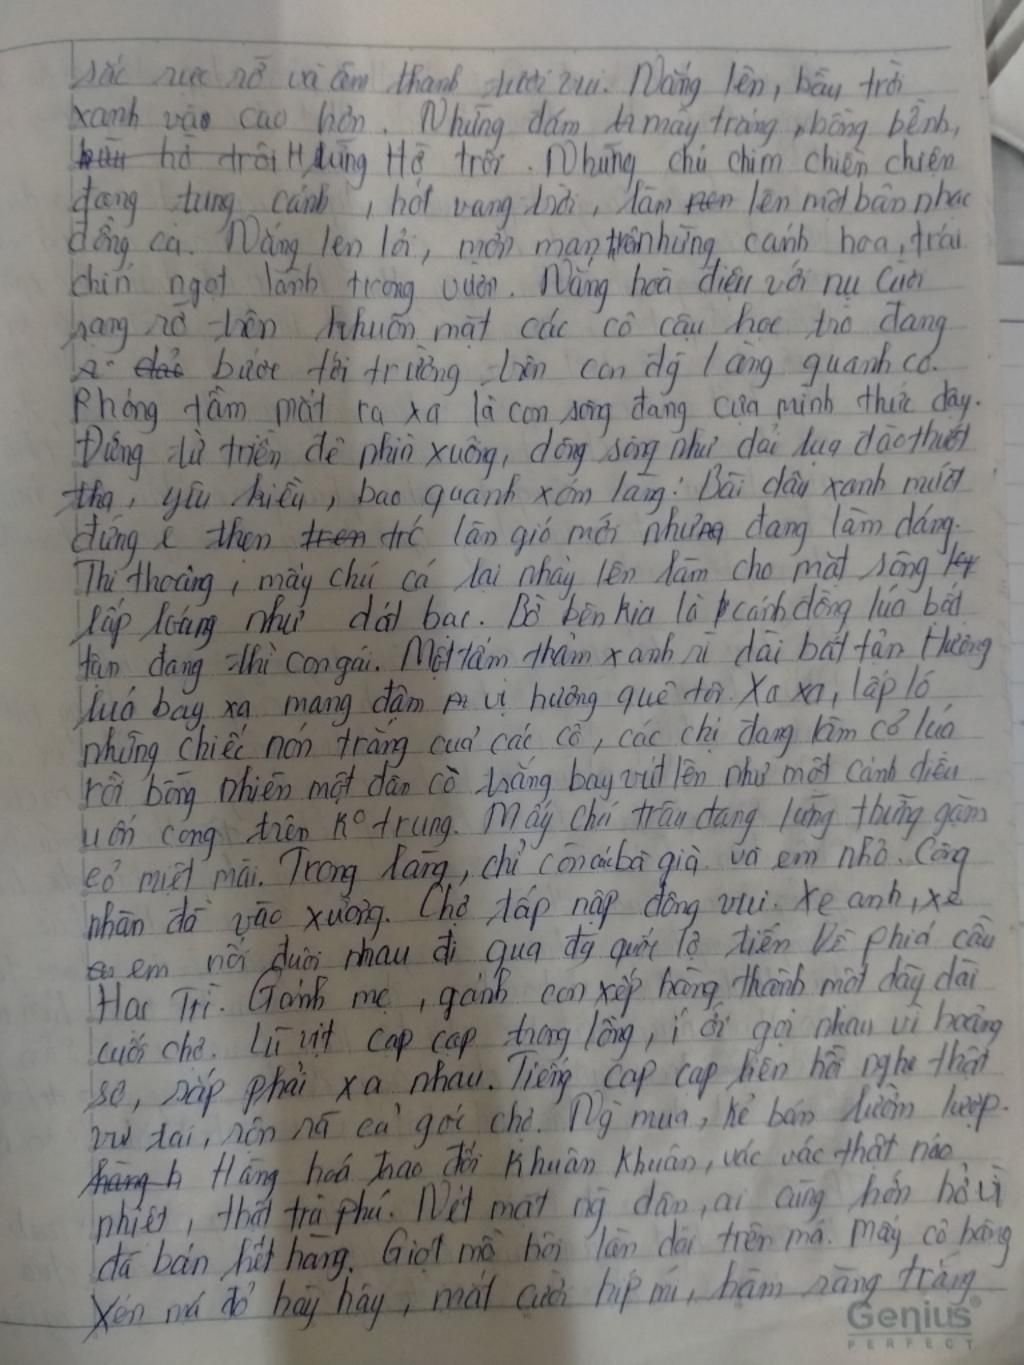 sắc rực rỡ và âm thanh tươi vui. Nắng lên, bầu trời
xanh vào cao hơn. Những đám mây trắng, bồng bềnh,
hờ trôi lững lờ trôi. Những chú chim chiền chiện
đang tung cánh, hót vang trời, làm nên lên một bản nhạc
đồng ca. Nắng len lỏi, mơn man trên những cánh hoa, trái
chín ngọt lành trong vườn. Nắng hoà điệu với nụ cười
rạng rỡ trên khuôn mặt các cô cậu học trò đang
bước tới trường trên con đg làng quanh co.
Phóng tầm mắt ra xa là con sông đang cựa mình thức dậy.
Đứng từ triền đê nhìn xuống, dòng sông như dải lụa đào thướt
tha, yêu kiều, bao quanh xóm làng. Bãi dâu xanh mướt
đứng e thẹn trc làn gió mới như đang làm dáng.
Thi thoảng, mấy chú cá lại nhảy lên làm cho mặt sông
lấp loáng như dát bạc. Bờ bên kia là cánh đồng lúa bát
tận đang thì con gái. Một tấm thảm xanh rì dài bất tận Hương
lúa bay xa mang đậm vị hương quê tôi. Xa xa, lấp ló
những chiếc nón trắng của các cô, các chị đang làm cỏ lúa
rồi bỗng nhiên một đàn cò trắng bay vút lên như một cánh diều
uốn cong trên ko trung. Mấy chú trâu đang lững thững gặm
cỏ miệt mài. Trong làng, chỉ còn các bà già và em nhỏ. Công
nhân đã vào xưởng. Chợ tấp nập đông vui. Xe anh, xe
em nối đuôi nhau đi qua đg quốc lộ tiến về phía cầu
Hạc Trì. Gánh mẹ, gánh con xếp hàng thành một dãy dài
cuối chợ. Lũ vịt cạp cạp trong lồng, í ới gọi nhau vì hoảng
sợ, sắp phải xa nhau. Tiếng cạp cạp liên hồi nghe thật
vui tai, rộn rã cả góc chợ. Ng mua, kẻ bán lườm lượp.
hàng h Hàng hoá trao đổi khuân khuân, vác vác thật náo
nhiệt, thật trù phú. Nét mặt ng dân, ai cũng hớn hở vì
đã bán hết hàng. Giọt mồ hôi lăn dài trên má. Mấy cô hàng
xén má đỏ hây hây, mắt cười híp mí, hàm răng trắng
Genius
PERFECT